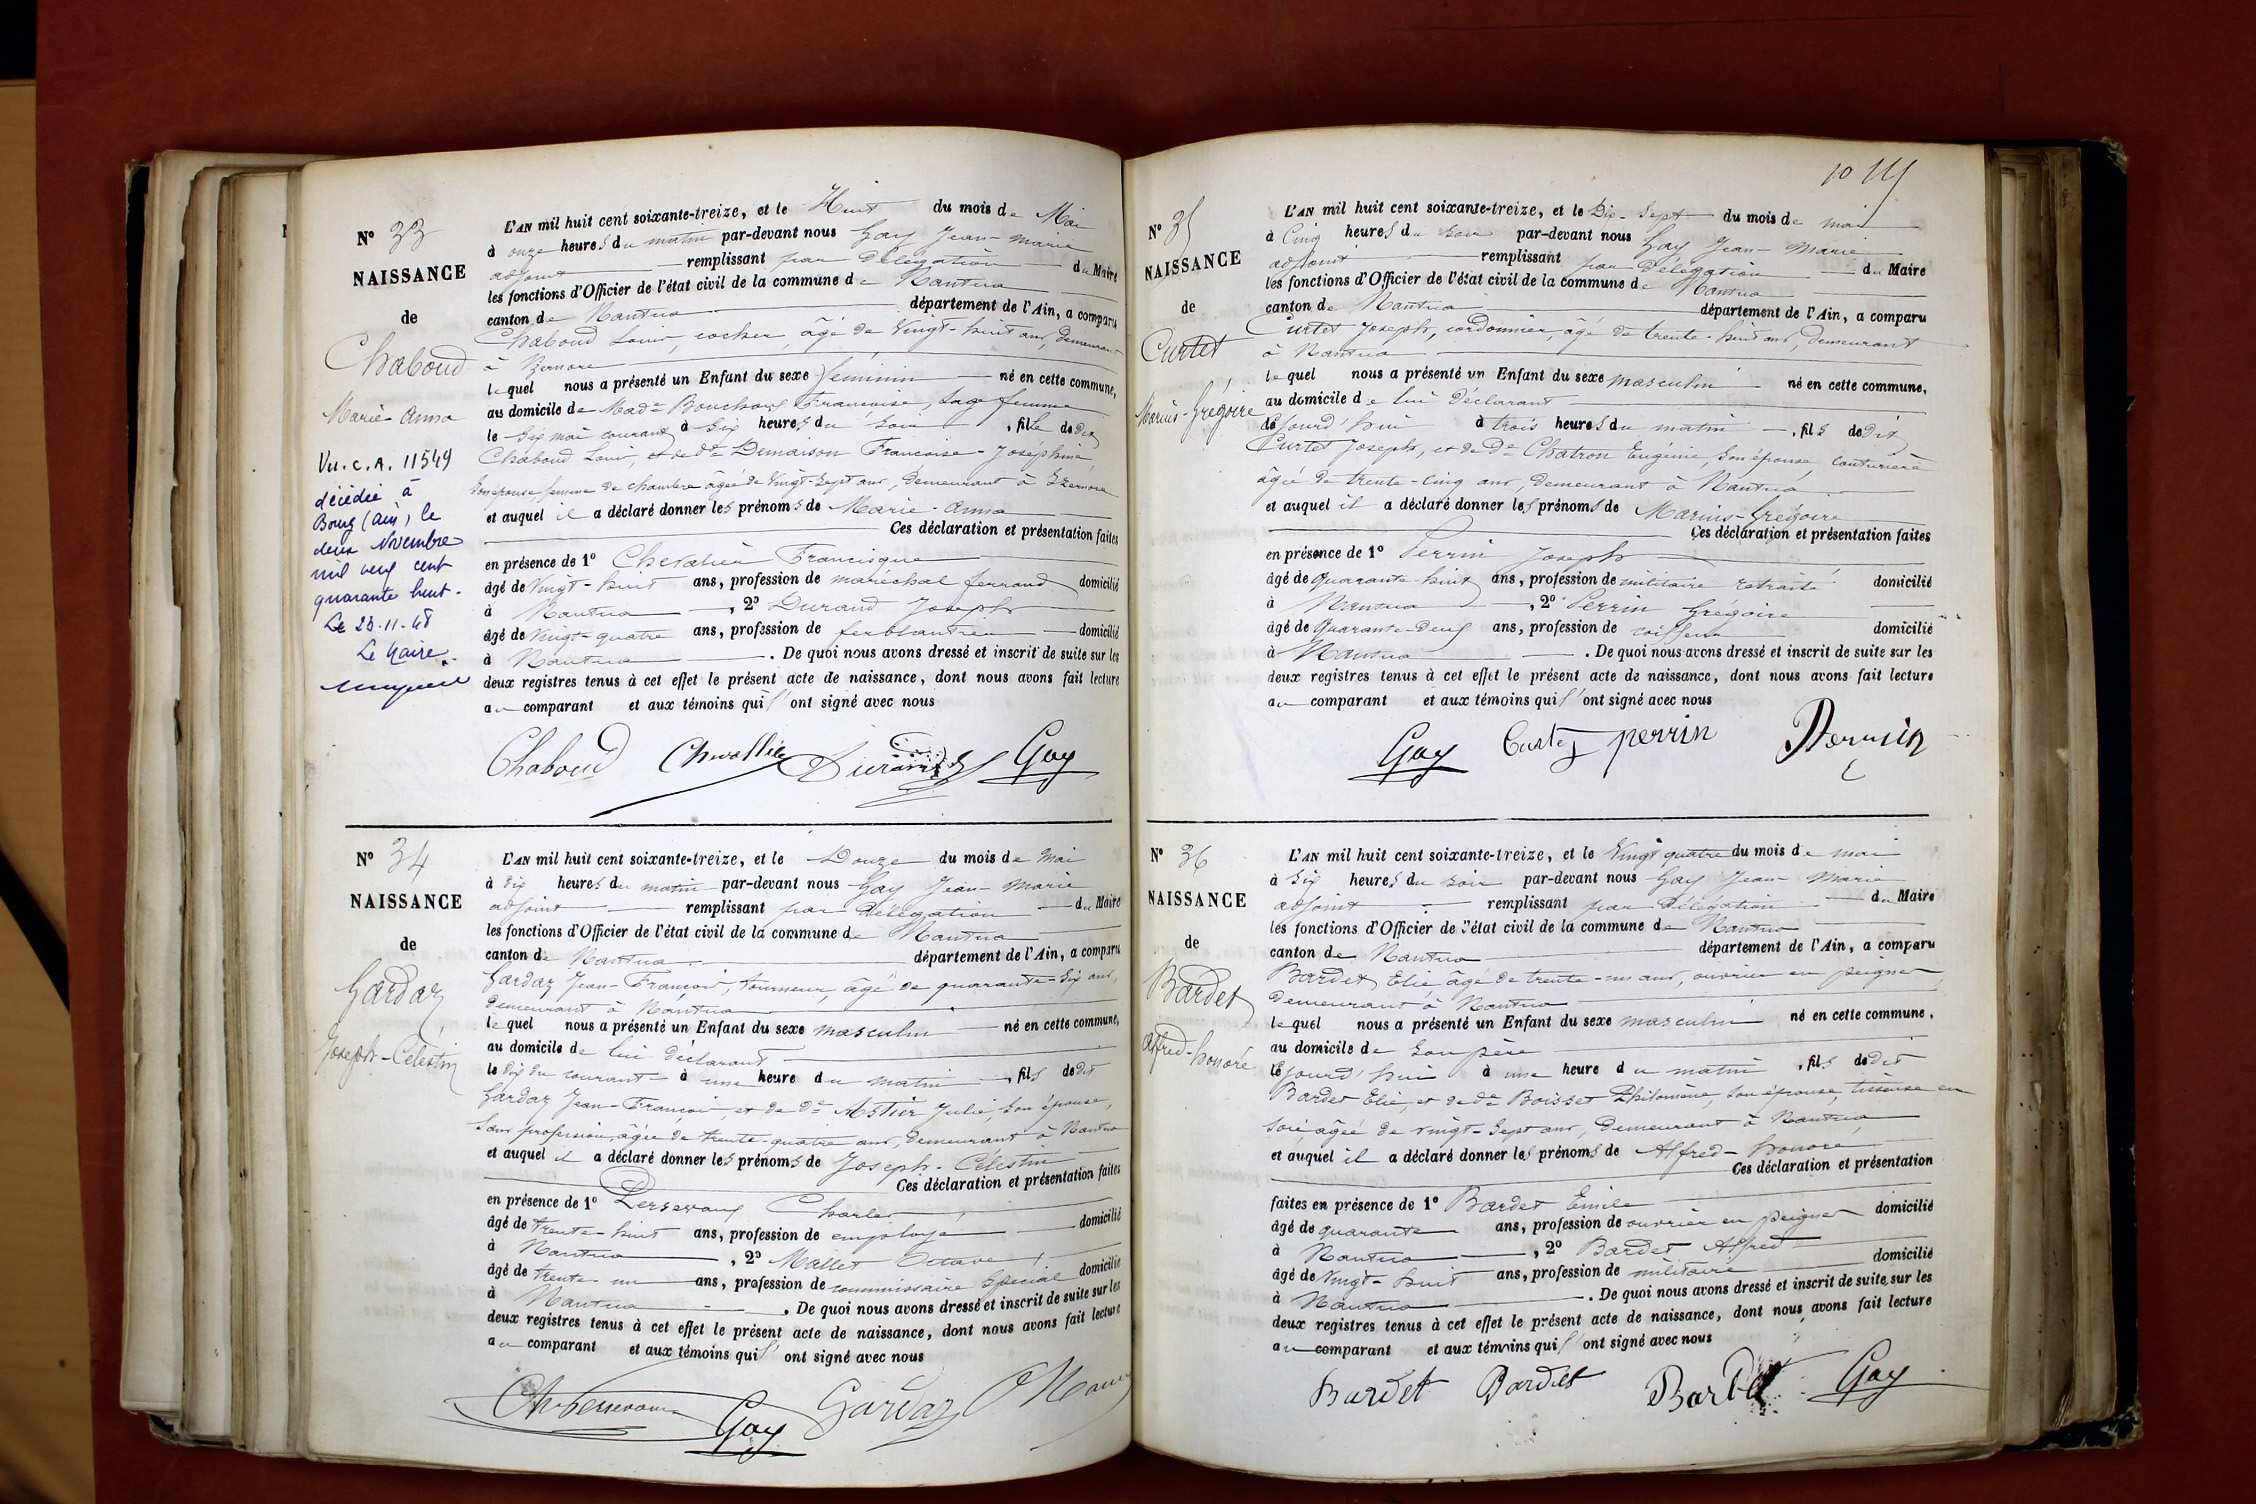 Nº 33
NAISSANCE
de
Chaboud
Marie-Anna
Vu. C. A. 11549
décédée à
Bourg (Ain), le
deux Novembre
mil neuf cent
quarante huit.
Le 23.11.48
Le Maire
L'AN mil huit cent soixante-treize, et le Huit du mois de Mai
à onze heures du matin par-devant nous Gay Jean-Marie
adjoint remplissant par délégation du Maire
les fonctions d'Officier de l'état civil de la commune de Nantua
canton de Nantua département de l'Ain, a comparu
Chaboud Louis, cocher, âgé de vingt-huit ans, demeurant
à
lequel nous a présenté un Enfant du sexe féminin né en cette commune,
au domicile de Made Françoise, sage femme
le six mai courant à six heures du soir, fille de dit
Chaboud Louis, et de de Demaison Françoise-Joséphine
son épouse, femme de chambre âgée de vingt-sept ans, demeurant à
et auquel il a déclaré donner les prénoms de Marie-Anna
Ces déclaration et présentation faites
en présence de 1º Chevalier Francisque
âgé de vingt-huit ans, profession de maréchal ferrand domicilié
à Nantua, 2º Durand Joseph
âgé de vingt-quatre ans, profession de ferblantier domicilié
à Nantua. De quoi nous avons dressé et inscrit de suite sur les
deux registres tenus à cet effet le présent acte de naissance, dont nous avons fait lecture
au comparant et aux témoins qui l' ont signé avec nous
Chaboud Chevallier Durand Gay
Nº 34
NAISSANCE
de
Gardaz
Joseph-Célestin
L'AN mil huit cent soixante-treize, et le Douze du mois de mai
à dix heures du matin par-devant nous Gay Jean-Marie
adjoint remplissant par délégation du Maire
les fonctions d'Officier de l'état civil de la commune de Nantua
canton de Nantua département de l'Ain, a comparu
Gardaz Jean-François, tourneur, âgé de quarante-six ans,
demeurant à Nantua
lequel nous a présenté un Enfant du sexe masculin né en cette commune,
au domicile de lui déclarant
le dix du courant à une heure du matin, fils de dit
Gardaz Jean-François et de de Astier Julie, son épouse,
sans profession, âgée de trente-quatre ans, demeurant à Nantua
et auquel il a déclaré donner les prénoms de Joseph-Célestin
Ces déclaration et présentation faites
en présence de 1º Charles
âgé de trente-huit ans, profession de employé domicilié
à Nantua, 2º Mallet Octave
âgé de trente-un ans, profession de commissaire spécial domicilié
à Nantua. De quoi nous avons dressé et inscrit de suite sur les
deux registres tenus à cet effet le présent acte de naissance, dont nous avons fait lecture
au comparant et aux témoins qui l' ont signé avec nous
Gay Gardaz
10
Nº 35
NAISSANCE
de
Curtet
Marius-Grégoire
L'AN mil huit cent soixante-treize, et le Dix-sept du mois de mai
à cinq heures du soir par-devant nous Gay Jean-Marie
adjoint remplissant par délégation du Maire
les fonctions d'Officier de l'état civil de la commune de Nantua
canton de Nantua département de l'Ain, a comparu
Curtet Joseph, cordonnier, âgé de trente-huit ans, demeurant
à Nantua
lequel nous a présenté un Enfant du sexe masculin né en cette commune,
au domicile de lui déclarant
cejourd'hui à trois heures du matin, fils de dit
Curtet Joseph, et de De Chatron Eugénie, son épouse, couturière
âgée de trente-cinq ans, demeurant à Nantua
et auquel il a déclaré donner les prénoms de Marius-Grégoire
Ces déclaration et présentation faites
en présence de 1º Perrin Joseph
âgé de quarante-huit ans, profession de militaire retraité domicilié
à Nantua, 2º Perrin Grégoire
âgé de Quarante-Deux ans, profession de coiffeur domicilié
à Nantua. De quoi nous avons dressé et inscrit de suite sur les
deux registres tenus à cet effet le présent acte de naissance, dont nous avons fait lecture
au comparant et aux témoins qui l' ont signé avec nous
Gay Curtet perrin Perrin
Nº 36
NAISSANCE
de
Bardet
Alfred-honoré
L'AN mil huit cent soixante-treize, et le Vingt quatre du mois de mai
à six heures du soir par-devant nous Gay Jean-Marie
adjoint remplissant par délégation du Maire
les fonctions d'Officier de l'état civil de la commune de Nantua
canton de Nantua département de l'Ain, a comparu
Bardet Elie âgé de trente-un ans, ouvrier en peignes
demeurant à Nantua
lequel nous a présenté un Enfant du sexe masculin né en cette commune,
au domicile de son père
cejourd'hui à une heure du matin, fils de dit
Bardet Elie, et de de Boisset Philomène, son épouse, tisseuse en
soie âgée de vingt-sept ans, demeurant à Nantua
et auquel il a déclaré donner les prénoms de Alfred-honoré
Ces déclaration et présentation
faites en présence de 1º Bardet Emile
âgé de quarante ans, profession de ouvrier en peignes domicilié
à Nantua, 2º Bardet Alfred
âgé de vingt-huit ans, profession de militaire domicilié
à Nantua. De quoi nous avons dressé et inscrit de suite sur les
deux registres tenus à cet effet le présent acte de naissance, dont nous avons fait lecture
au comparant et aux témoins qui l' ont signé avec nous
Bardet Bardet Bardet Gay